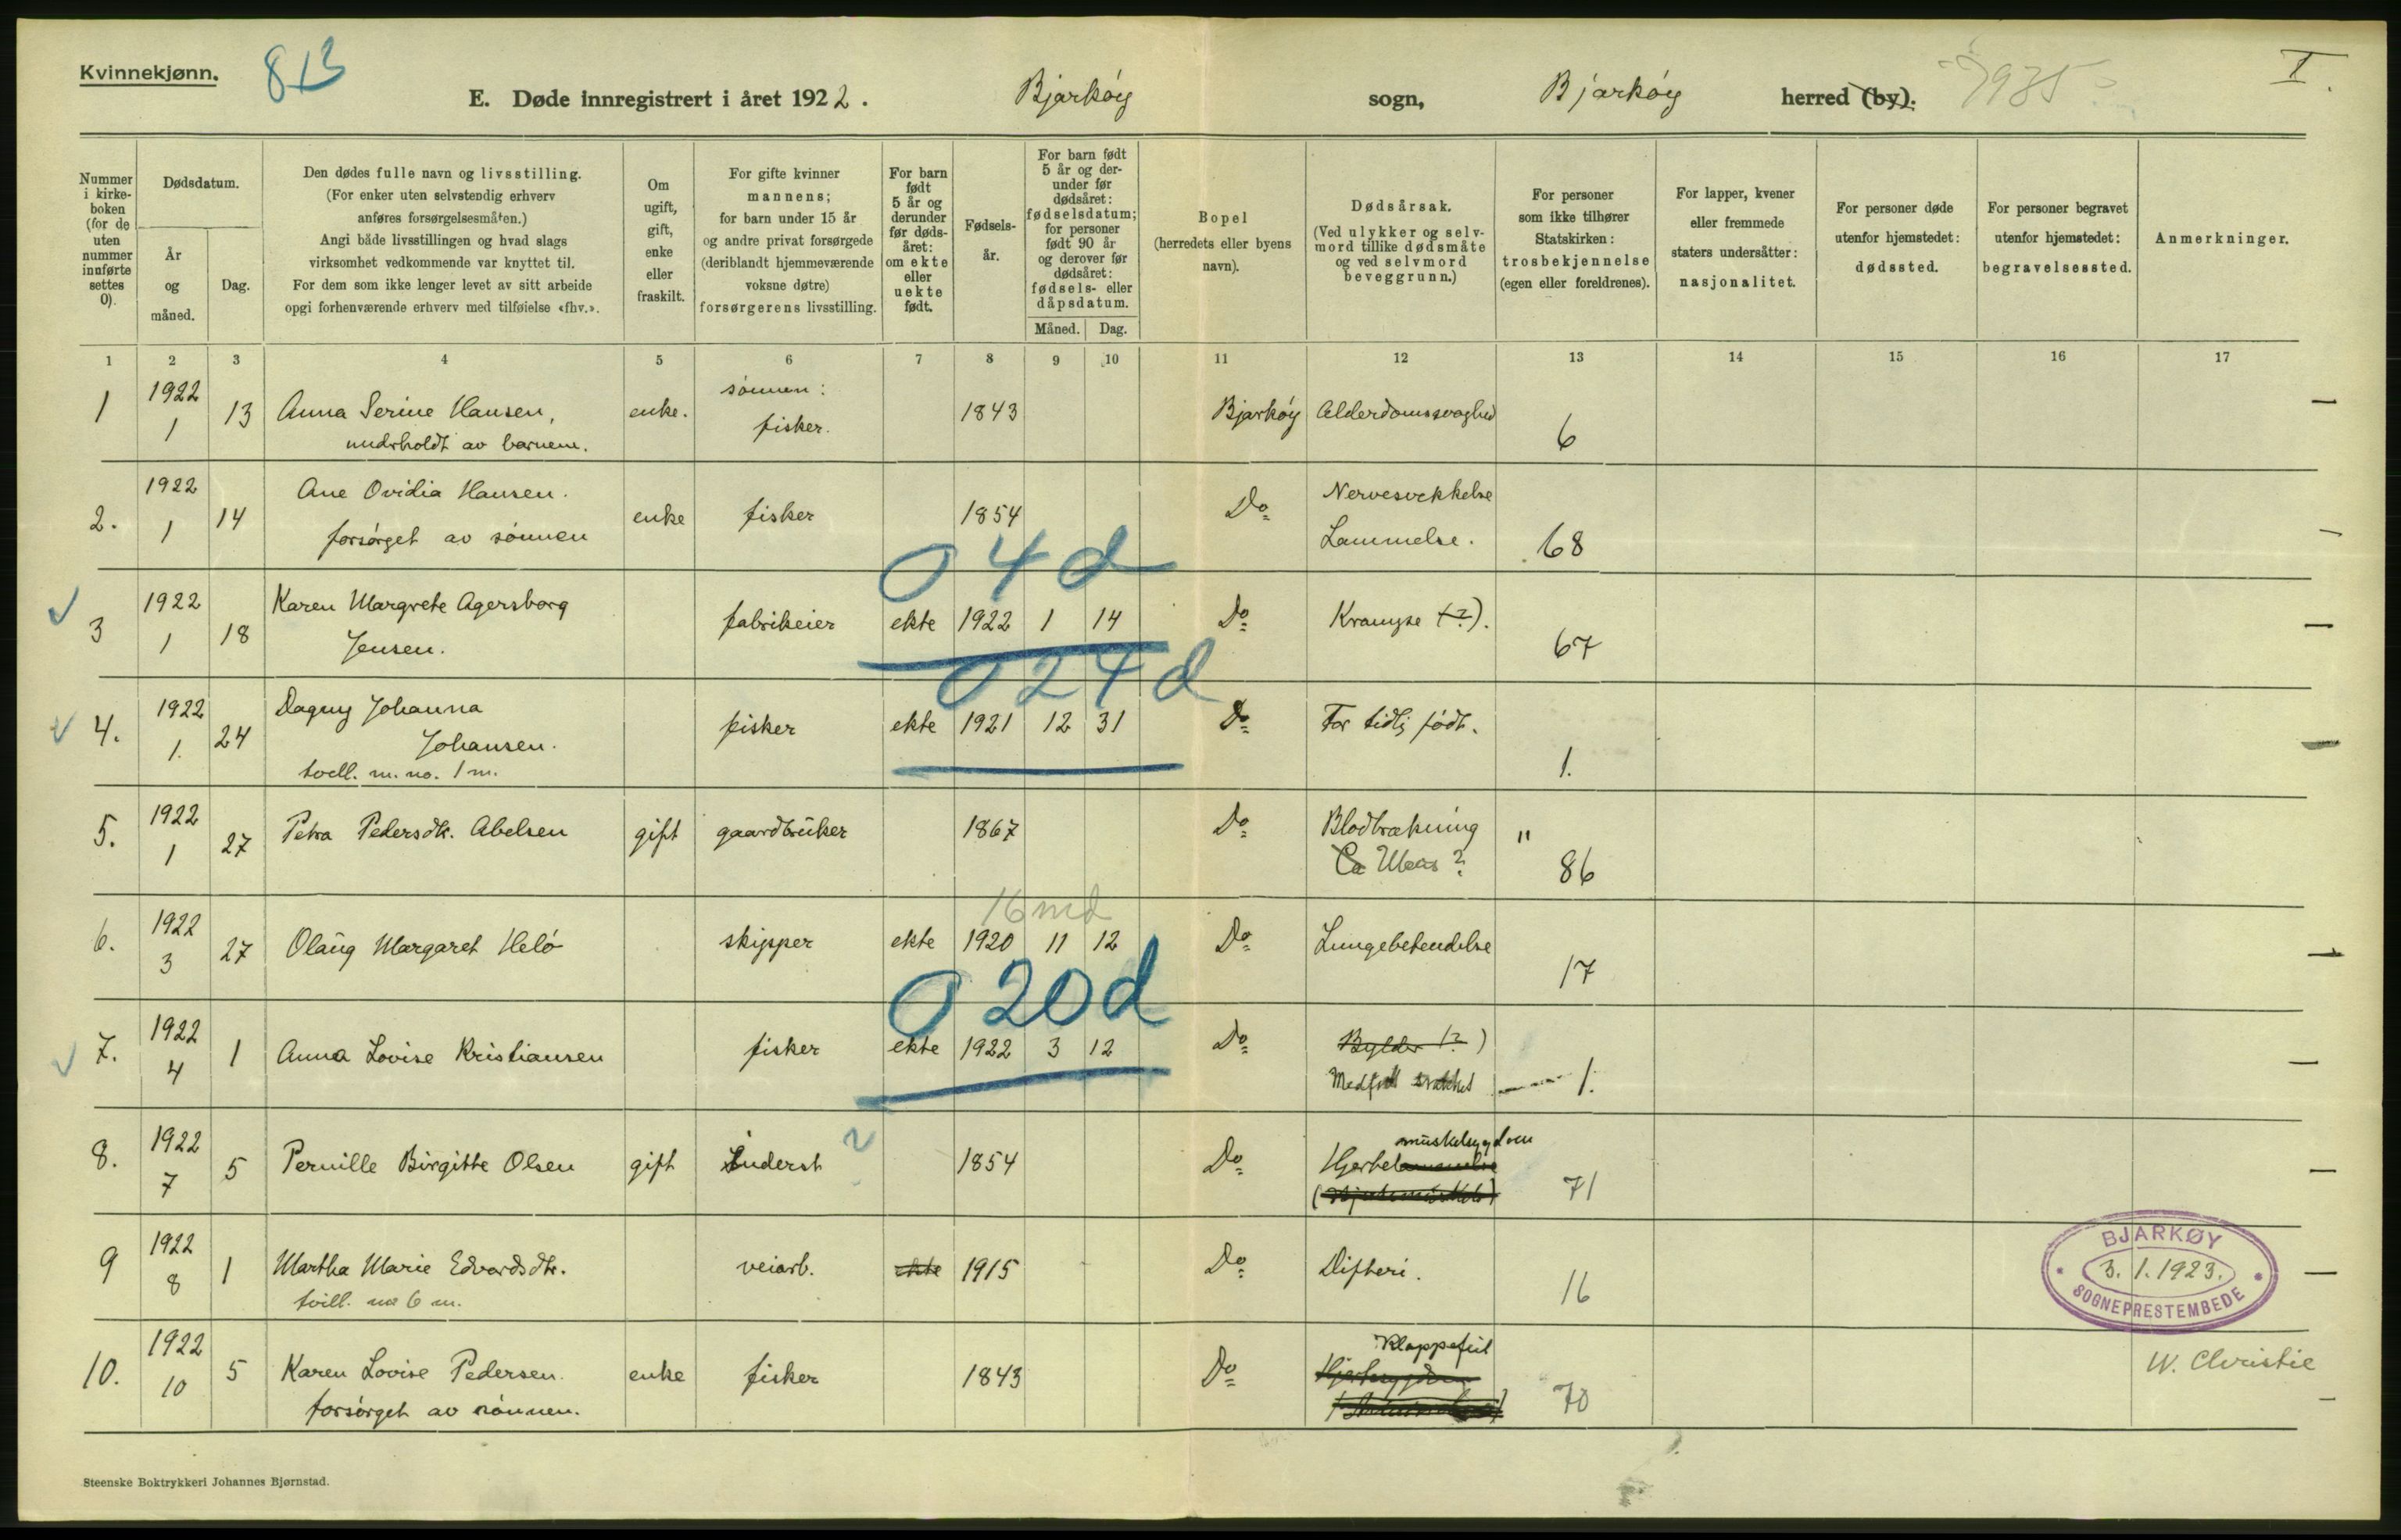 Kvinnekjønn.
813
E. Døde innregistrert i året 1922.
Bjarkøy sogn, Bjarkøy herred (by).
I.
Nummer i kirkeboken (for de uten nummer innførte settes 0).
Dødsdatum.
År og måned.
Dag.
Den dødes fulle navn og livsstilling.
(For enker uten selvstendig erhverv
anføres forsørgelsesmåten.)
Angi både livsstillingen og hvad slags
virksomhet vedkommende var knyttet til.
For dem som ikke lenger levet av sitt arbeide
opgi forhenværende erhverv med tilføielse «fhv.».
Om ugift, gift, enke eller fraskilt.
For gifte kvinner
mannens;
for barn under 15 år
og andre privat forsørgede
(deriblandt hjemmeværende
voksne døtre)
forsørgerens livsstilling.
For barn født 5 år og derunder før dødsåret: om ekte eller uekte født.
Fødselsår.
For barn født 5 år og derunder før dødsåret: fødselsdatum; for personer født 90 år og derover før dødsåret: fødsels- eller dåpsdatum.
Måned. Dag.
Bopel
(herredets eller byens
navn).
Dødsårsak.
(Ved ulykker og selvmord tillike dødsmåte og ved selvmord beveggrunn.)
For personer
som ikke tilhører
Statskirken:
trosbekjennelse
(egen eller foreldrenes).
For lapper, kvener
eller fremmede
staters undersåtter:
nasjonalitet.
For personer døde
utenfor hjemstedet:
dødssted.
For personer begravet
utenfor hjemstedet:
begravelsessted.
Anmerkninger.
1 2 3 4 5 6 7 8 9 10 11 12 13 14 15 16 17
1 1922 1 13 Anna Serine Hansen, enke. sønnen: fisker. 1843 Bjarkøy Alderdomssvaghed 6
underholdt av barnene.
2. 1922 1 14 Ane Ovidia Hansen. enke fisker 1854 Do Nervesvekkelse
forsørget av sønnen Lammelse. 68
04d
3 1922 1 18 Karen Margrete Agersborg fabrikeier ekte 1922 1 14 Do Krampe (?).
Jensen. 67
024d
4. 1922 1. 24 Dagny Johanna fisker ekte 1921 12 31 Do For tidlig født.
Johansen. 1.
tvill. m. no. 1 m.
5. 1922 1 27 Petra Pedersdtr. Abelsen gift gaardbruker 1867 Do Blodbrækning "
Ca Ulcus? 86
16 md
6. 1922 3 27 Olaug Margaret Helø skipper ekte 1920 11 12 Do Lungebetendelse
17
020d
7. 1922 4 1 Anna Lovise Kristiansen fisker ekte 1922 3 12 Do Bylder (?)
Medfødt svakhet 1.
8. 1922 7 5 Pernille Birgitte Olsen gift Inderst 1854 Do Hjerte muskelsygdom
71
9 1922 8 1 Martha Marie Edvardsdtr. veiarb. ekte 1915 Do Difteri.
tvill. no 6 m. 16
BJARKØY
3. 1. 1923.
SOGNEPRESTEMBEDE
10. 1922 10 5 Karen Lovise Pedersen. enke fisker 1843 Do Klappefeil
forsørget av sønnen. 70
W. Christie
Steenske Boktrykkeri Johannes Bjørnstad.